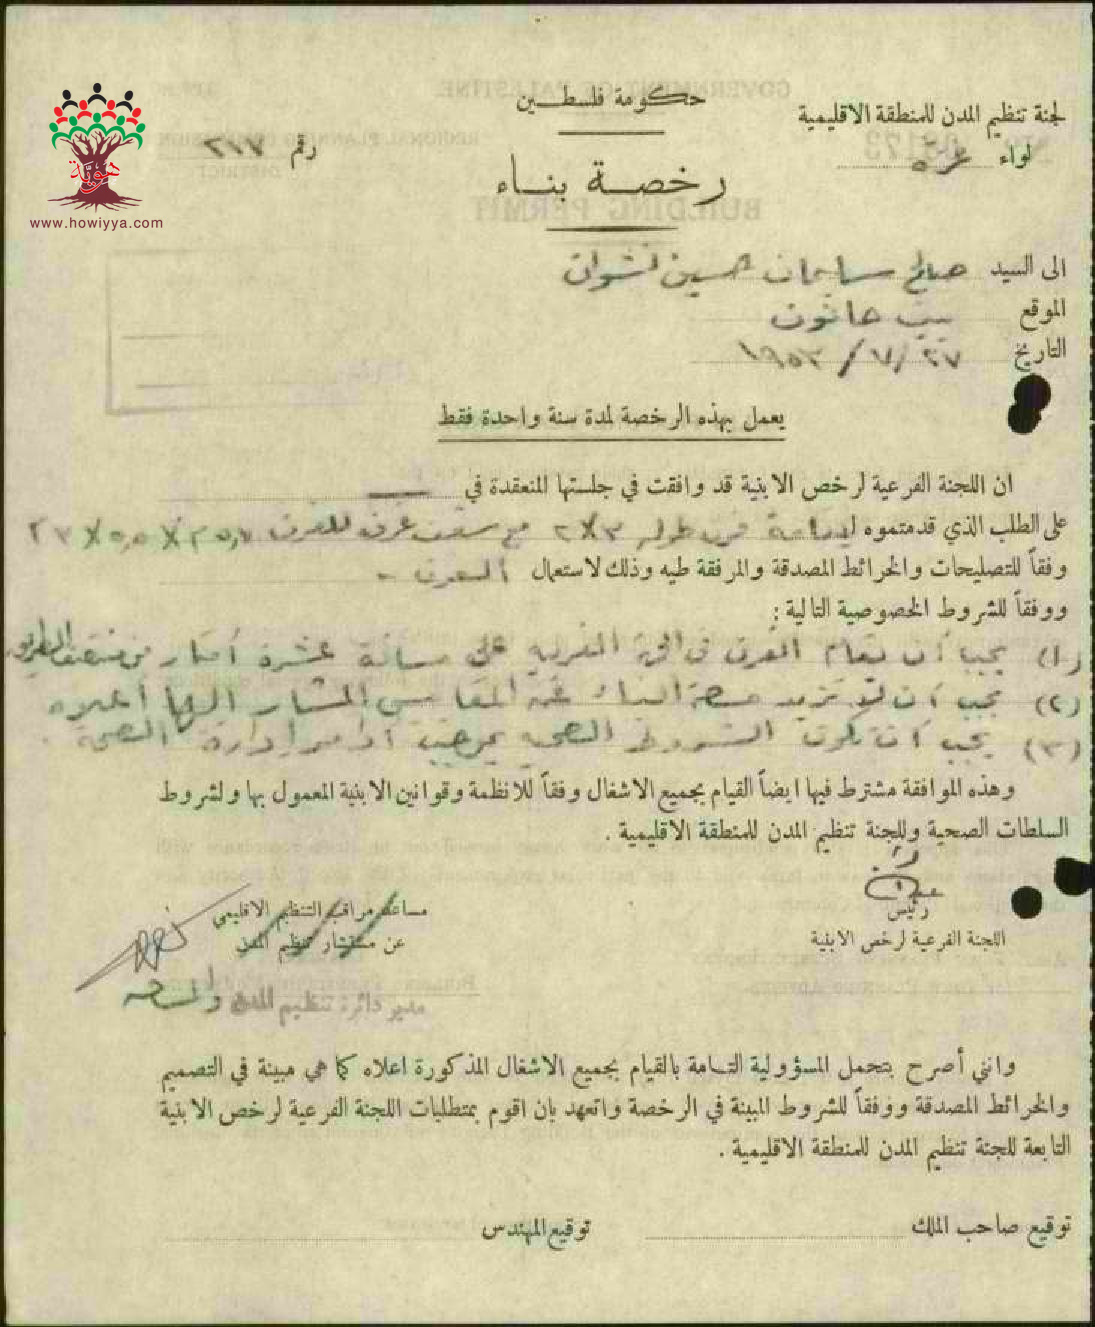 حكومة فلسطين
لجنة تنظيم المدن للمنطقة الاقليمية
لواء غزة
رقم ٢١٧
رخصة بناء
هوية
www.howiyya.com
الى السيد صالح سليمان حسين نشوان
الموقع بيت حانون
التاريخ ٢٧ / ٧ / ١٩٥٣
يعمل بهذه الرخصة لمدة سنة واحدة فقط
ان اللجنة الفرعية لرخص الابنية قد وافقت في جلستها المنعقدة في
على الطلب الذي قدمتموه لاقامة فرن طوله ٣×٢ مع سقف غرف للفرن
وفقاً للتصليحات والخرائط المصدقة والمرفقة طيه وذلك لاستعمال الفرن -
ووفقاً للشروط الخصوصية التالية :
(١) يجب أن يقام الفرن في الجهة الغربية على مسافة عشرة أمتار من منتصف الطريق.
(٢) يجب أن لا تزيد مساحة البناء عن المقاسس المشار اليها أعلاه
(٣) يجب أن تكون الشروط الصحية بموجب أوامر إدارة الصحة .
وهذه الموافقة مشترط فيها ايضاً القيام بجميع الاشغال وفقاً للانظمة وقوانين الابنية المعمول بها ولشروط
السلطات الصحية وللجنة تنظيم المدن للمنطقة الاقليمية .
رئيس
اللجنة الفرعية لرخص الابنية
مساعد مراقب التنظيم الاقليمي
عن مستشار تنظيم المدن
مدير دائرة تنظيم المدن والمساحة
وانني أصرح بتحمل المسؤولية التامة بالقيام بجميع الاشغال المذكورة اعلاه كما هي مبينة في التصميم
والخرائط المصدقة ووفقاً للشروط المبينة في الرخصة واتعهد بان اقوم بمتطلبات اللجنة الفرعية لرخص الابنية
التابعة للجنة تنظيم المدن للمنطقة الاقليمية .
توقيع صاحب الملك
توقيع المهندس